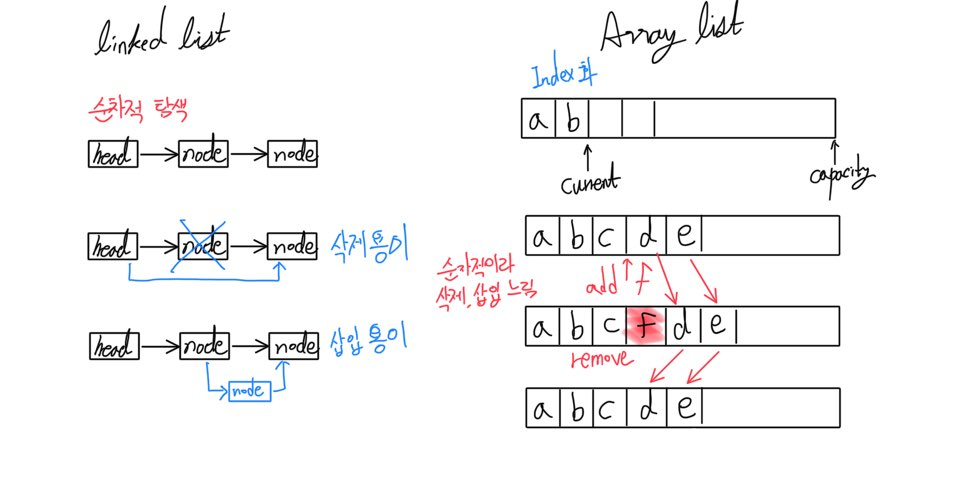 linked list
순차적 탐색
head node node
head node node
삭제 용이
head node node
삽입 용이
node
Array list
Index화
a b
current
capacity
a b c d e
순차적이라
삭제, 삽입 느림
add f
a b c f d e
remove
a b c d e